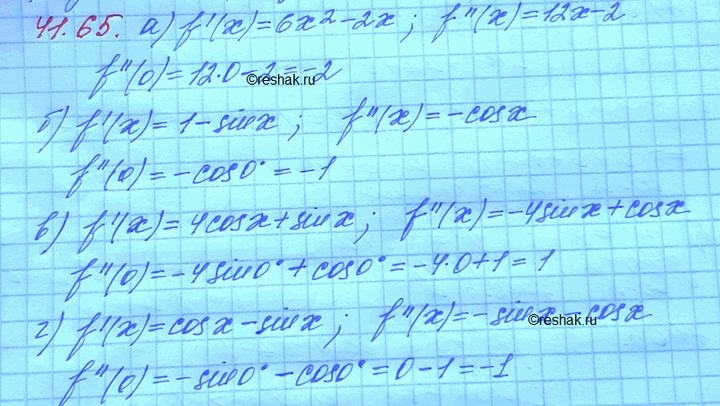 41.65. а) f'(x)=6x²-2x; f''(x)=12x-2
f''(0)=12·0-2=-2
©reshak.ru
б) f'(x)=1-sinx; f''(x)=-cosx
f''(0)=-cos0°=-1
в) f'(x)=4cosx+sinx; f''(x)=-4sinx+cosx
f''(0)=-4sin0°+cos0°=-4·0+1=1
г) f'(x)=cosx-sinx; f''(x)=-sinx-cosx
©reshak.ru
f''(0)=-sin0°-cos0°=0-1=-1